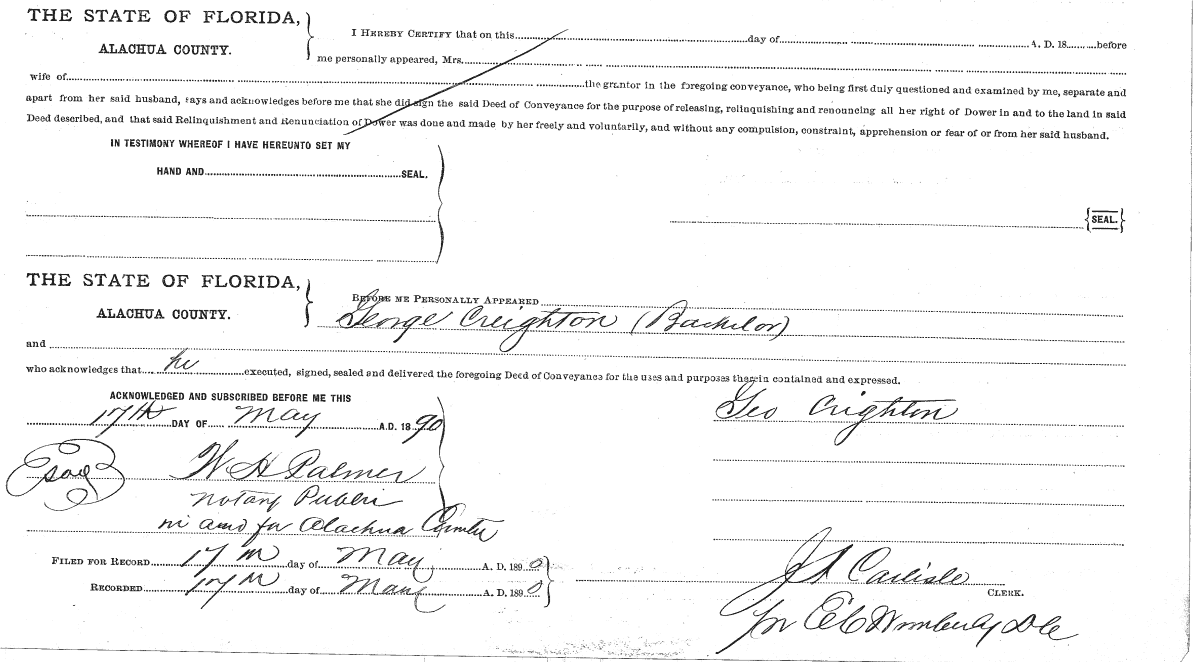 THE STATE OF FLORIDA,
ALACHUA COUNTY.
I HEREBY CERTIFY that on this day of A. D. 18 before
me personally appeared, Mrs.
wife of the grantor in the foregoing conveyance, who being first duly questioned and examined by me, separate and
apart from her said husband, says and acknowledges before me that she did sign the said Deed of Conveyance for the purpose of releasing, relinquishing and renouncing all her right of Dower in and to the land in said
Deed described, and that said Relinquishment and Renunciation of Dower was done and made by her freely and voluntarily, and without any compulsion, constraint, apprehension or fear of or from her said husband.
IN TESTIMONY WHEREOF I HAVE HEREUNTO SET MY
HAND AND SEAL.
SEAL.
THE STATE OF FLORIDA,
ALACHUA COUNTY.
BEFORE ME PERSONALLY APPEARED
George Creighton (Bachelor)
and
who acknowledges that he executed, signed, sealed and delivered the foregoing Deed of Conveyance for the uses and purposes therein contained and expressed.
ACKNOWLEDGED AND SUBSCRIBED BEFORE ME THIS
17th DAY OF May A.D. 1890
Geo Crighton
W H Palmer
Notary Public
in and for Alachua County
FILED FOR RECORD 17th day of May A. D. 1890
RECORDED 17th day of May A. D. 1890
Carlisle
CLERK.
Wimberly